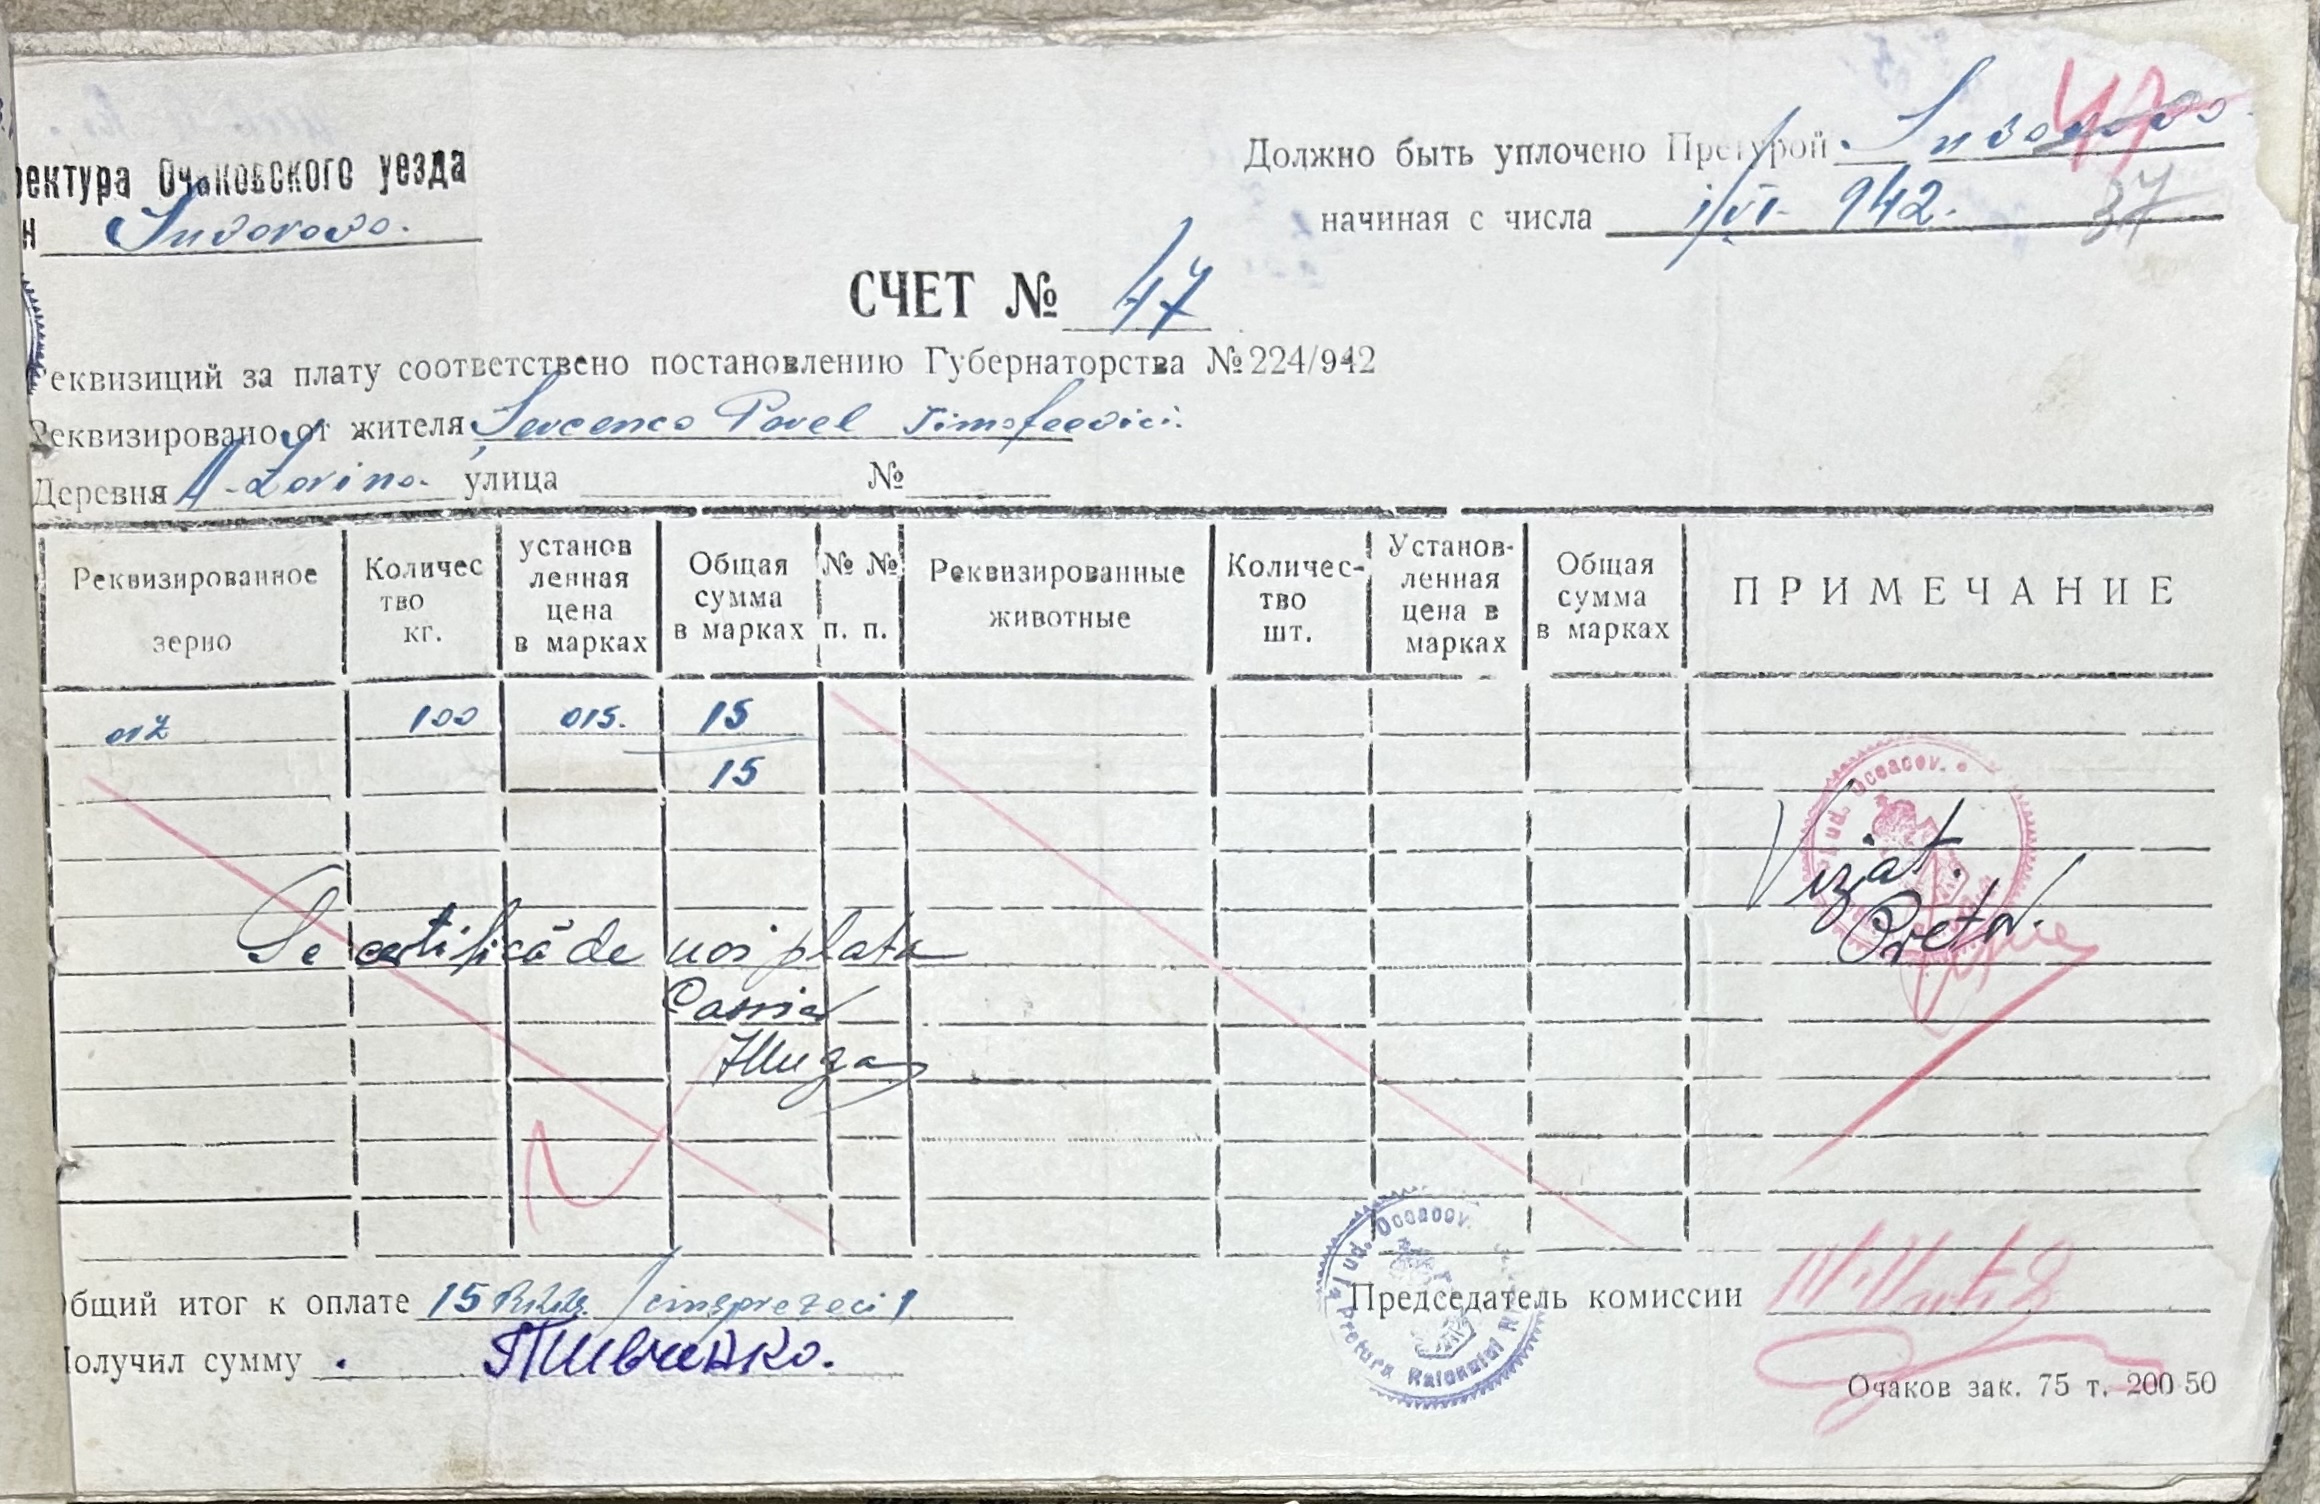 ректура Очаковского уезда
н Suvorovo.
Должно быть уплочено Претурой Suvorovo
47
начиная с числа 1/VI- 942.
37
СЧЕТ № 47
Реквизиций за плату соответствено постановлению Губернаторства №224/942
Реквизировано от жителя Sevcenco Pavel Timofeevici.
Деревня A-Zorino. улица №
Реквизированное зерно
Количес тво кг.
установ ленная цена в марках
Общая сумма в марках
№ № п. п.
Реквизированные животные
Количес- тво шт.
Установ- ленная цена в марках
Общая сумма в марках
ПРИМЕЧАНИЕ
orz 100 015. 15
15
Jud. Oceacov.
Vizat.
Pretor.
Se certifică de noi plata
Casier
Общий итог к оплате 15 /cinsprezeci/
Председатель комиссии
Jud. Oceacov. Pretura Raionului
Получил сумму
Очаков зак. 75 т. 200-50